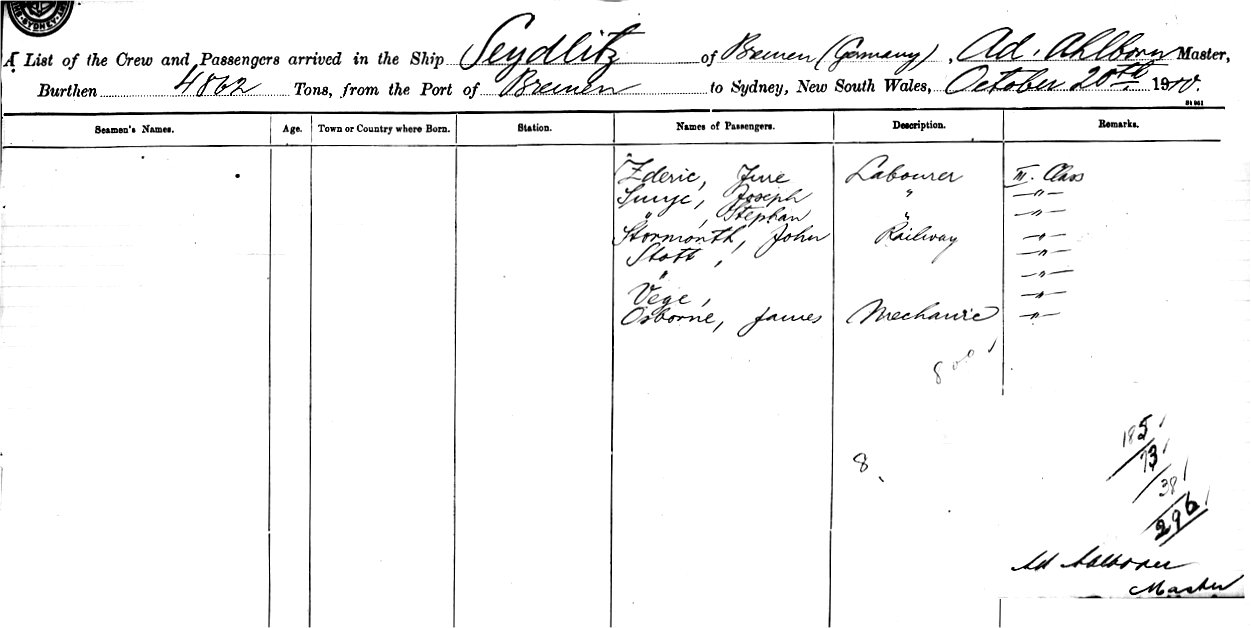 SYDNEY
A List of the Crew and Passengers arrived in the Ship Seydlitz of Bremen (Germany), Ad. Ahlborn Master,
Burthen 4862 Tons, from the Port of Bremen to Sydney, New South Wales, October 20th 1910.
Seamen's Names. Age. Town or Country where Born. Station. Names of Passengers. Description. Remarks.
Zderic, Jure Labourer III. Class
Sunje, Joseph " —"—
" , Stephan " —"—
Stormonth, John Railway —"—
Stott , —"—
" —"—
Vege, —"—
Osborne, James Mechanic —"—
8
185
8.
73
38
296
Ad Ahlborn
Master